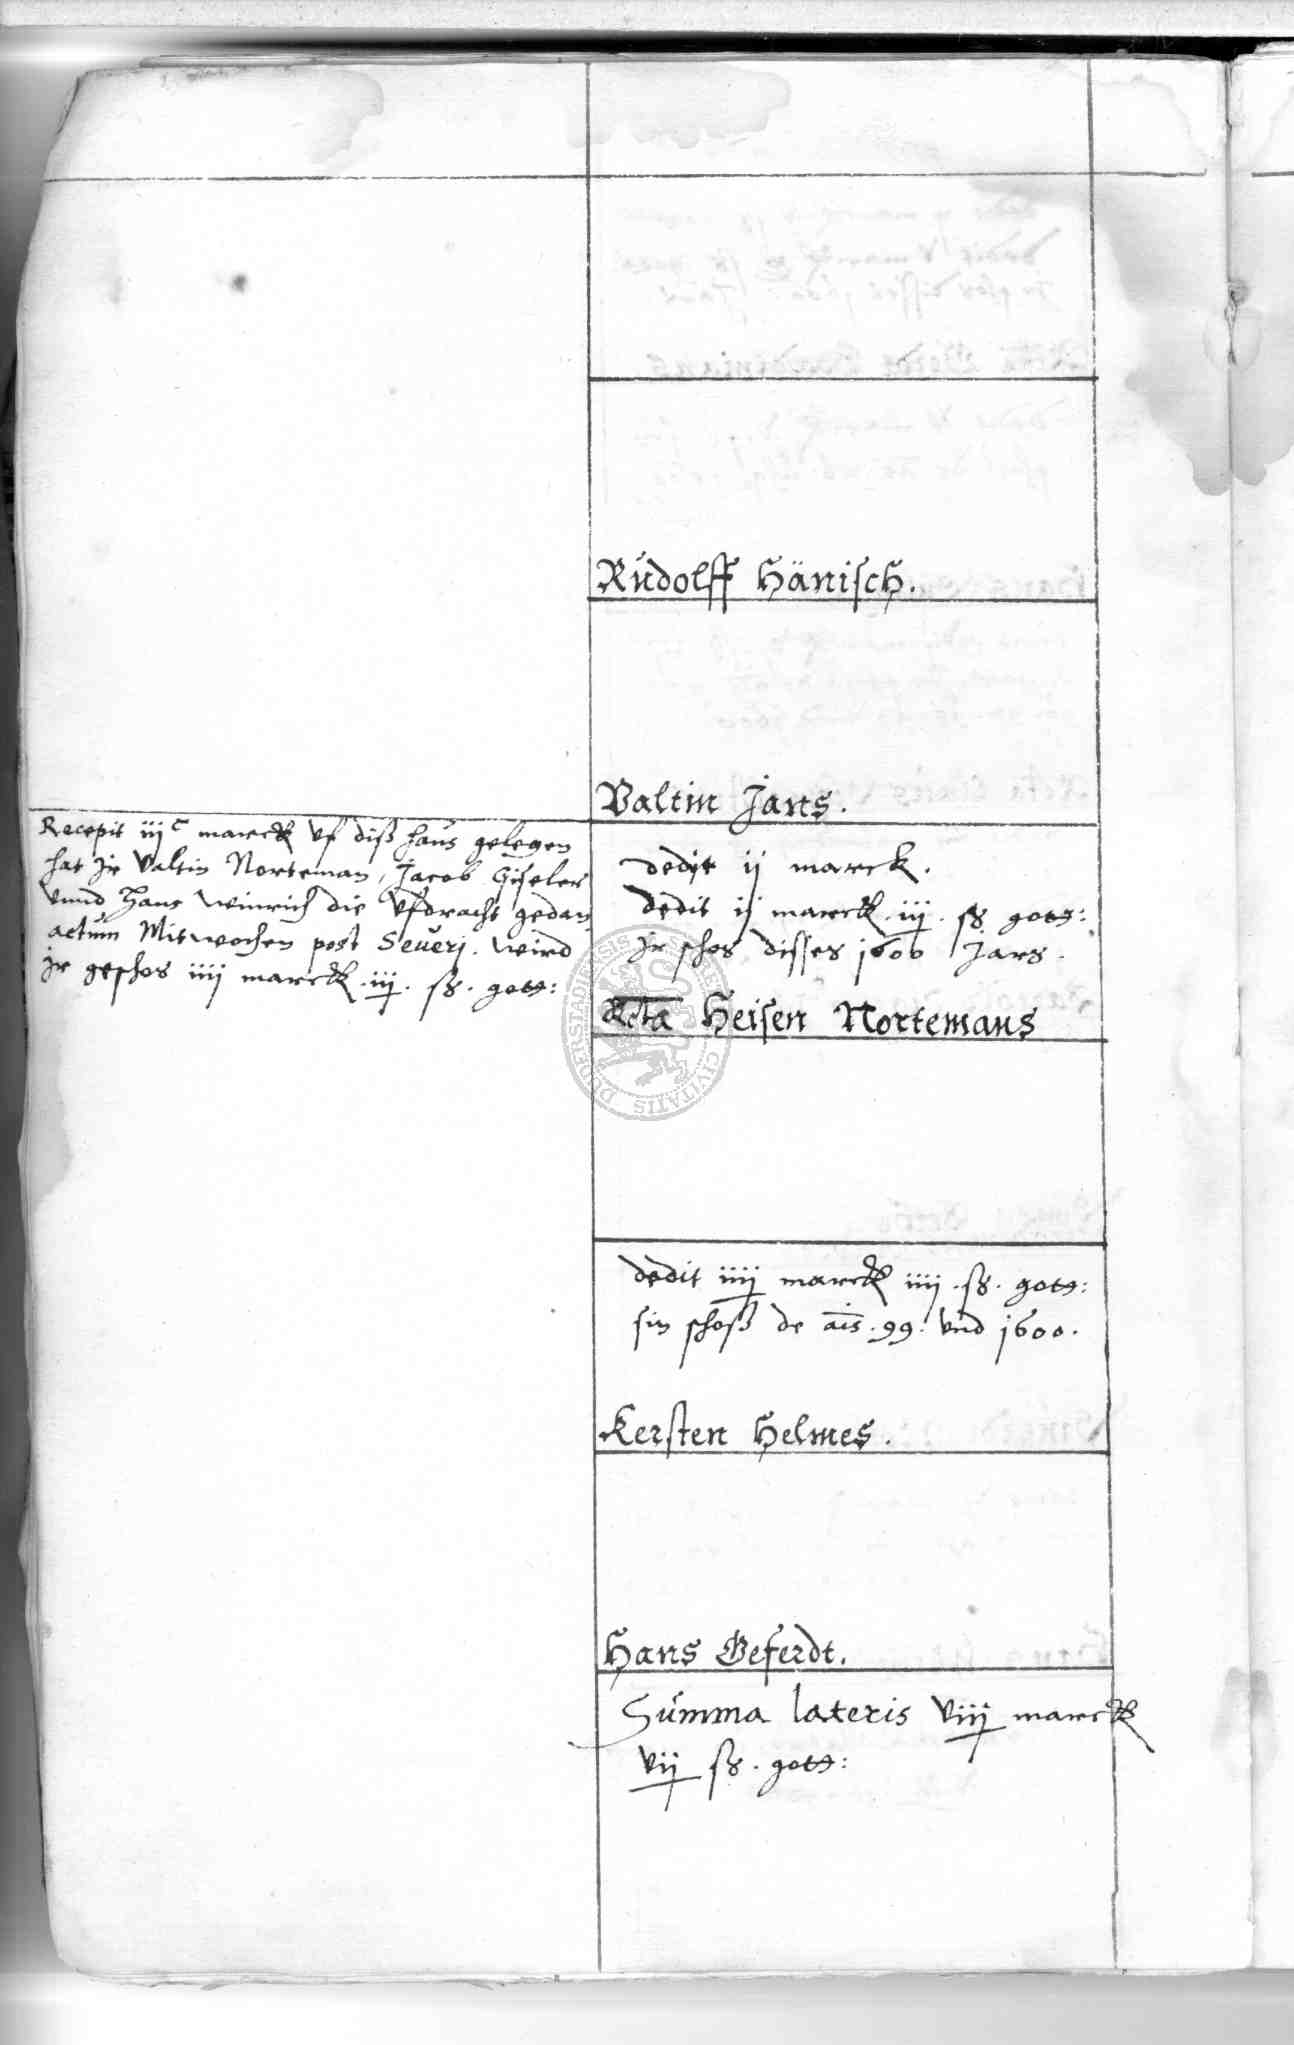 Rudolff Hänisch.
Valtin Jans.
Recepit iijc marck vf diß haus gelegen
hat Jr Valtin Norteman, Jacob Giseler
vnnd Hans Winrich die vfdracht gedan
actum Mitwochen post Severj. wird
Jr geschos iiij marck .iij. ß. gott:
dedit ij marck.
dedit ij marck .iij. ß gott:
Jr schos disses 1600 Jars.
Rcta Heisen Nortemans
dedit iiij marck iiij .ß. gott:
sin schoß de ais .99. vnd 1600.
Kersten Helmes.
Hans Geferdt.
Summa lateris viij marck
vij ß. gott:
SIGILLUM CIVITATIS DUDERSTADIENSIS